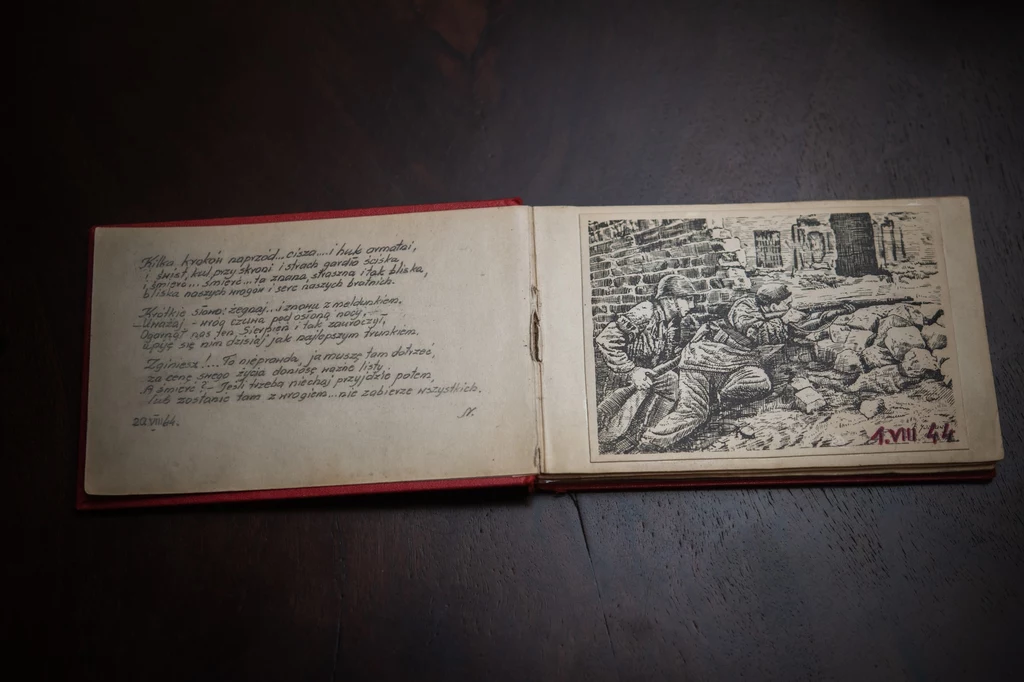 Kilka kroków naprzód... cisza.... i huk armatni,
i świst kul przy skroni i strach gardło ściska,
i śmierć... śmierć... ta znana, straszna i tak bliska,
bliska naszych wrogów i serc naszych bratnich.
Krótkie słowo: żegnaj... i znowu z meldunkiem.
- Uważaj - wróg czuwa pod osłoną nocy,
Ogarnął nas ten Sierpień i tak zauroczył,
Upij się nim dzisiaj jak najlepszym trunkiem.
Zginiesz!... To nieprawda, ja muszę tam dotrzeć,
za cenę swego życia donieść ważne listy.
A śmierć?... Jeśli trzeba niechaj przyjdzie potem,
lub zostanie tam z wrogiem... nie zabierze wszystkich.
20.VIII.44.
N.
1.VIII 44